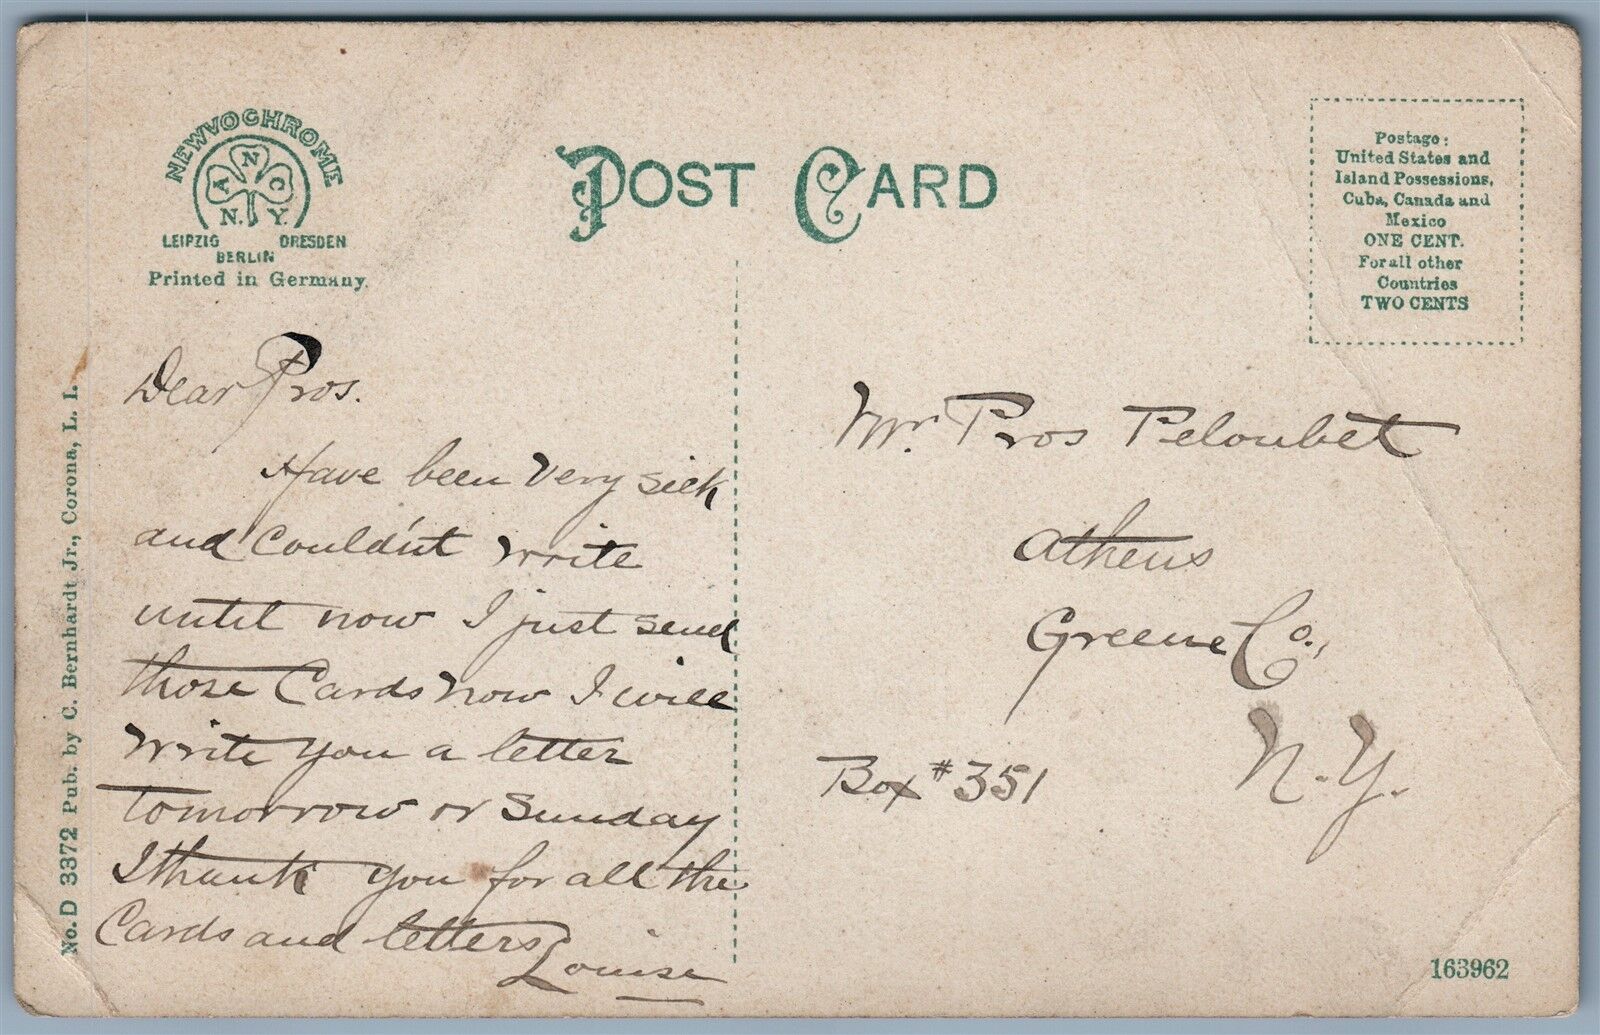 NEWVOCHROME
A N C
N. Y.
LEIPZIG DRESDEN
BERLIN
Printed in Germany.
POST CARD
Postage:
United States and
Island Possessions,
Cuba, Canada and
Mexico
ONE CENT.
For all other
Countries
TWO CENTS
No. D 3372 Pub. by C. Bernhardt Jr., Corona, L. I.
Dear Pros.
Have been very sick
and Could'nt write
until now I just send
those Cards now I will
write you a letter
tomorrow or Sunday
I thank you for all the
Cards and letters
Louise
Mr. Pros Peloubet
Athens
Greene Co.,
N.Y.
Box #351
163962